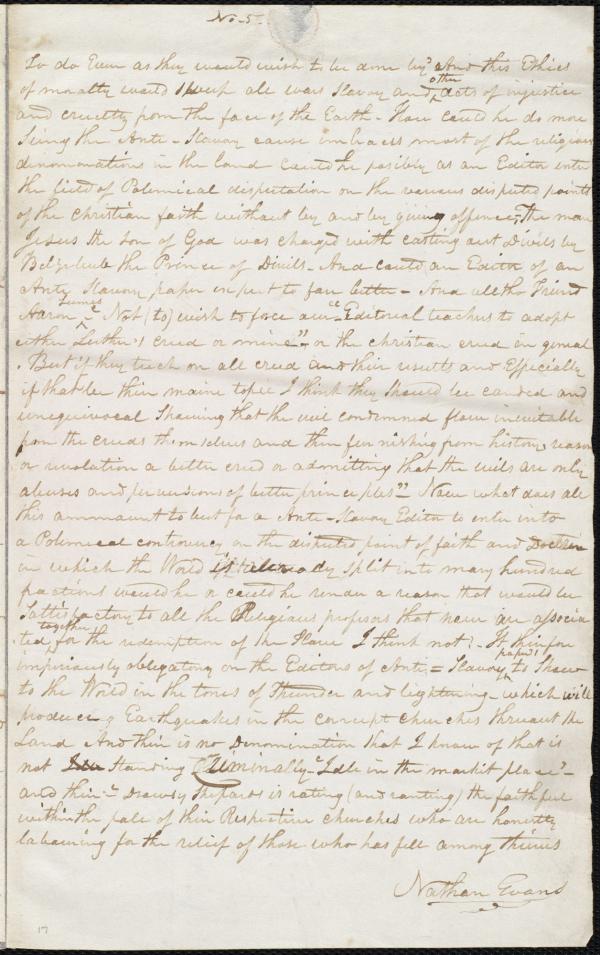 No. 5.
To do Even as they would wish to be done by" And this Ethics
of moralty would sweep all wars Slavory and other acts of injustice
and cruelty from the face of the Earth - How could he do more
Seing the Ante-Slavory cause imbraces most of the religious
denomonations in the land could he posibly as an Editor ente
the field of Polemical disputation on the various disputed points
of the christian faith without by and by giving offince, The man
Jesus the son of God was charged with casting out Divils by
Belzebub the Prince of Divils - And could an Editor of an
Anty Slavory paper expect to fair better - And altho Friend
Aaron Seemes Not (to) wish to force our Editorial teachers to adopt
either Luther's creed or mine" or the christian creed in genral
. But if they tuch on all creed and their results and Especially
if that be thir maine topic I think they should be candid and
unequivocal Shewing that the evil condemned flow inevitable
from the creeds themselves and then fur nishing from history, reason
or revolation a better creed or admitting that the evils are only
abuses and pirversions of better principles" Now what does all
this ammount to but for a Ante-Slavory Editor to enter into
a Polemical controversy on the disputed point of faith and Doctrin
in which the World is allready split into many hundred
fractions would he or could he render a reason that would be
Sattisfactory to all the Religious profesors that now are associa
ted together for the redemption of the Slave I think not. It thirfor
impiriously obligatory on the Editors of Ante=Slavory papers to Shew
to the World in the tones of Thunder and lightning which will
produce Earthquakes in the corrupt churches thruout the
Land And thir is no Denomination that I know of that is
not Standing Criminally "Idle in the market place"
and thir Drowsy Sheperds is rating (and ranting) the faithful
within the pale of thir Respective churches who are honestly
labouring for the relief of those who has fell among thieves
Nathan Evans
17